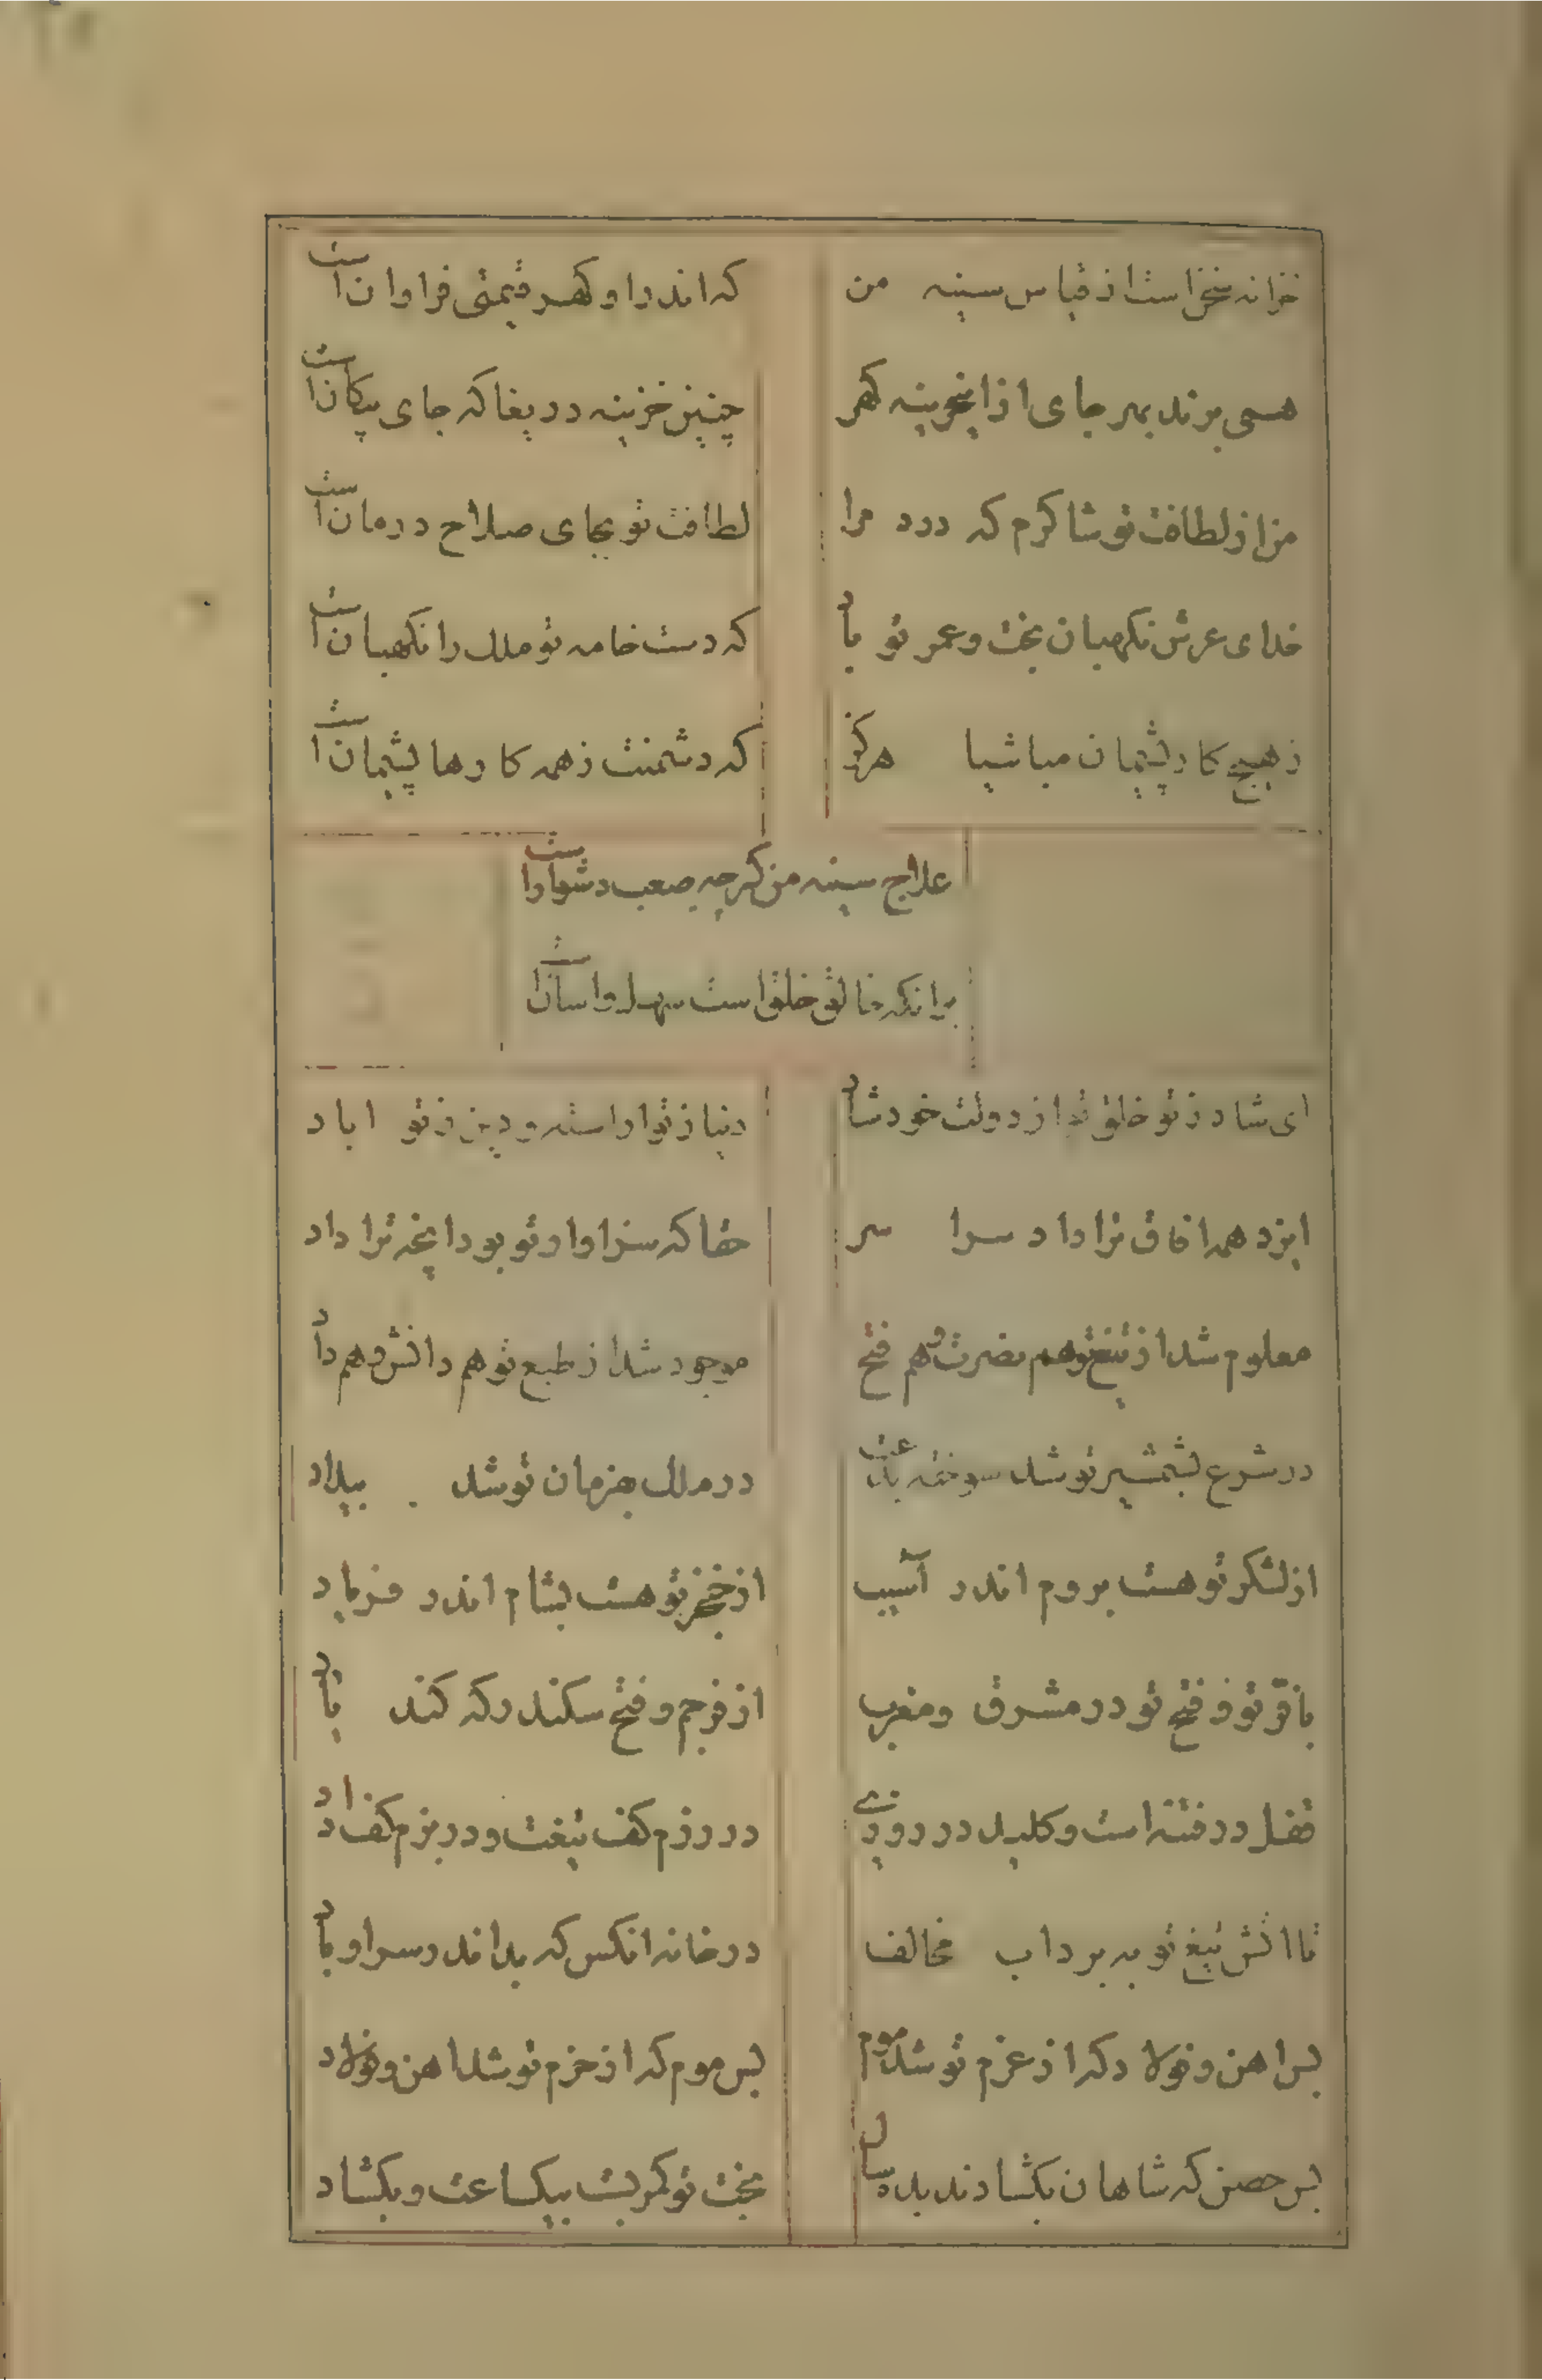 خزانه سخن است از قیاس سینه من
که اندر او گهر قیمتی فراوان است
همی برند بهر جای از این خزینه گهر
چنین خزینه دریغا که جای پیکان است
مرا از لطافت تو شاکرم که درد مرا
لطافت تو بجای صلاح درمان است
خدای عرش نگهبان بخت و عمر تو باد
که دست خامه تو ملک را نگهبان است
ز هیچ کار پشیمان مباشیا هرگز
که دشمنت ز همه کارها پشیمان است
علاج سینه من گرچه صعب دشوار است
برانکه خالق خلق است سهل و اسان است
ای شاد ز تو خلق تو از دولت خود شاد
دنیا ز تو اراسته و دین ز تو اباد
ایزد همه افاق ترا داد سرا سر
حقا که سزاوار تو بود انچه ترا داد
معلوم شد از تیغ تو هم نصرت و هم فتح
موجود شد از طبع تو هم دانش و هم داد
در شرع بشمشیر تو شد سوخته بدعت
در ملک بفرمان تو شد بیداد
از لشکر تو هست بروم اندر آسیب
از خنجر تو هست بشام اندر فریاد
با فر تو و فتح تو در مشرق و مغرب
از فر جم و فتح سکندر که کند یاد
قفل در فتنه است و کلید در روزی
در رزم کف تیغت و در بزم کف راد
تا اتش تیغ تو به برد اب مخالف
در خانه انکس که بد اندر سر او باد
بس اهن و فولاد که از عزم تو شد موم
بس موم که از حزم تو شد اهن و فولاد
بس حصن که شاهان نگشادند بده سال
بخت تو کمر بست بیکساعت و بگشاد